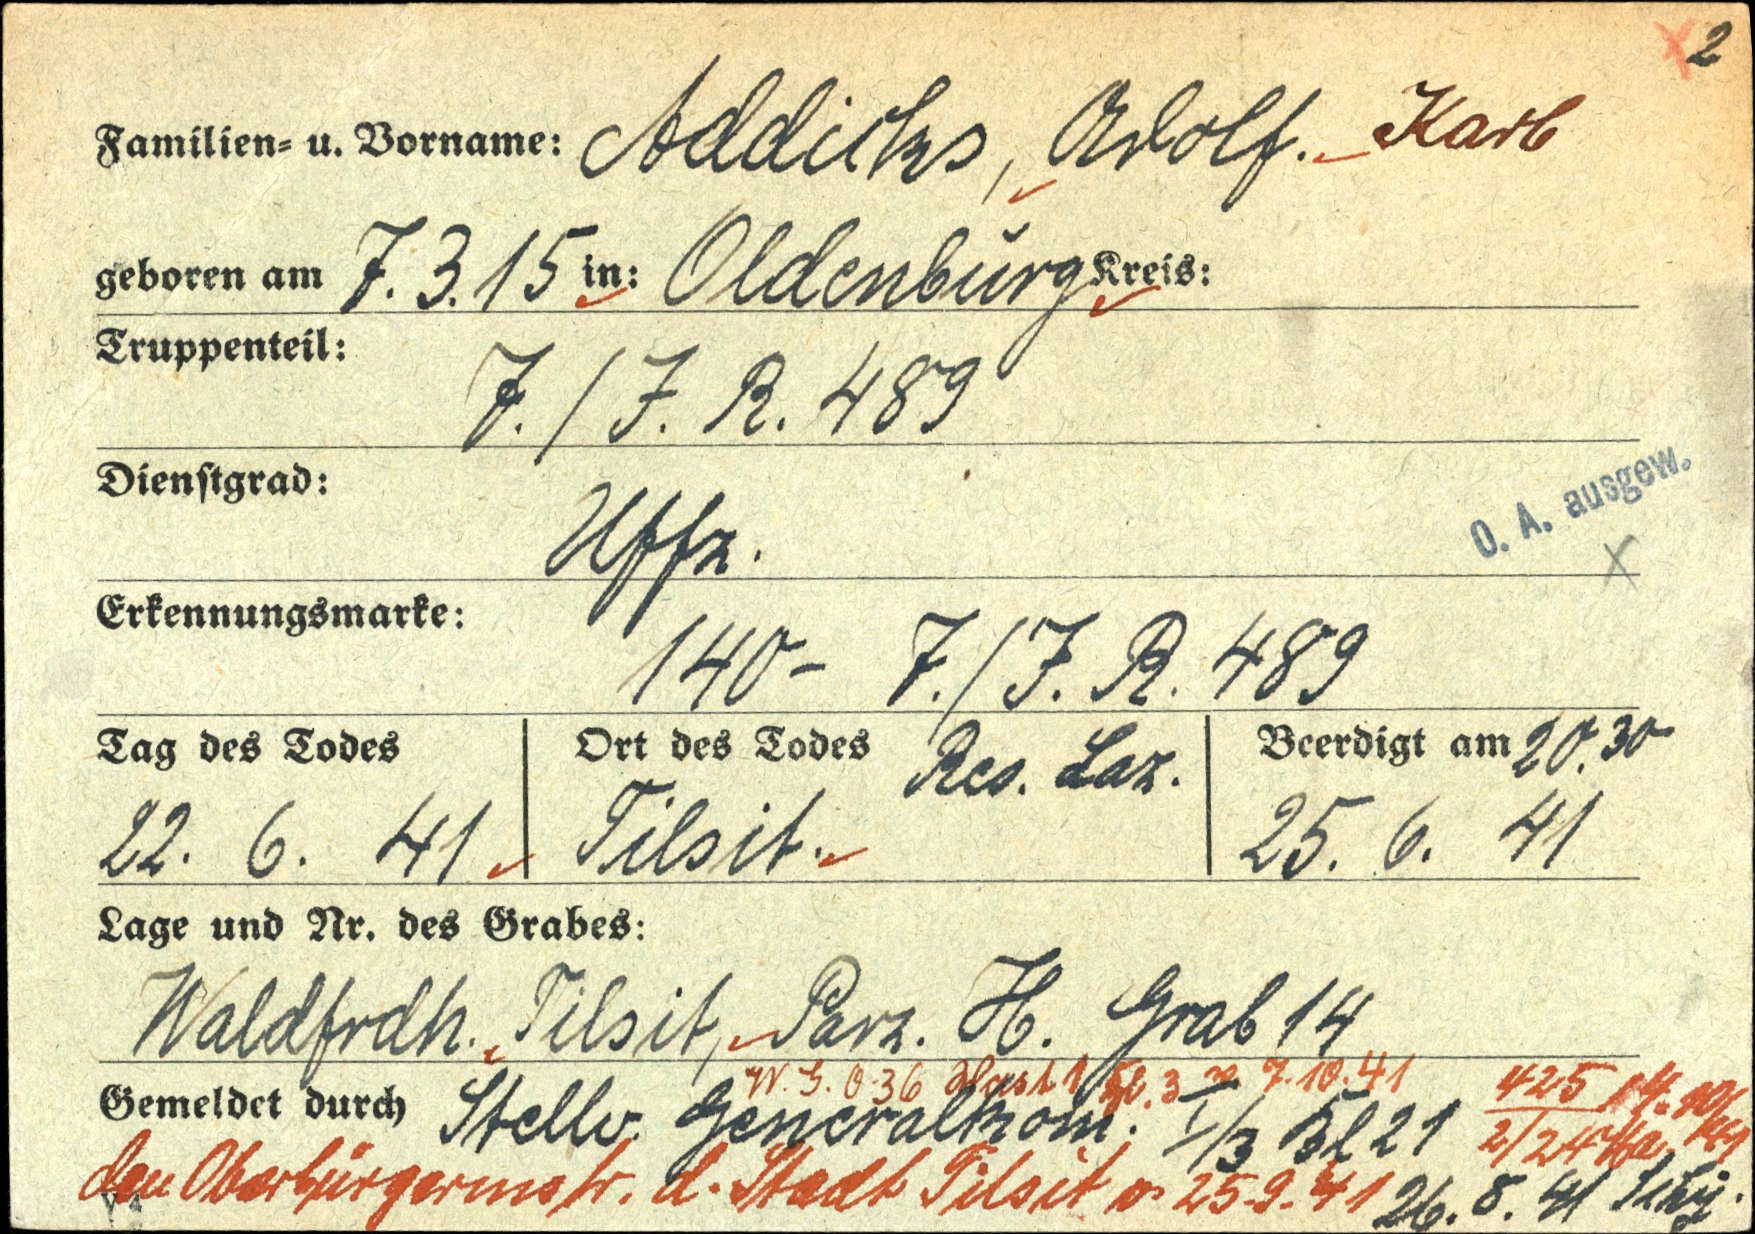 2
Familien- u. Vorname: Addicks, Adolf. Karl
geboren am 7.3.15 in: Oldenburg Kreis:
Truppenteil:
7./J. R. 489
Dienstgrad:
Uffz.
O. A. ausgew.
X
Erkennungsmarke:
140- 7./J. R. 489
Tag des Todes
22. 6. 41
Ort des Todes Res. Laz.
Tilsit.
Beerdigt am 20.30
25. 6. 41
Lage und Nr. des Grabes:
Waldfrdh. Tilsit, Parz. H. Grab 14
W. G. O. 36 Bl. 3 v. 7.10.41
Gemeldet durch Stellv. Generalkom. I/3 Bl 21
425
2/24
den Oberbürgermstr. d. Stadt Tilsit v. 25.9.41
26. 8. 41